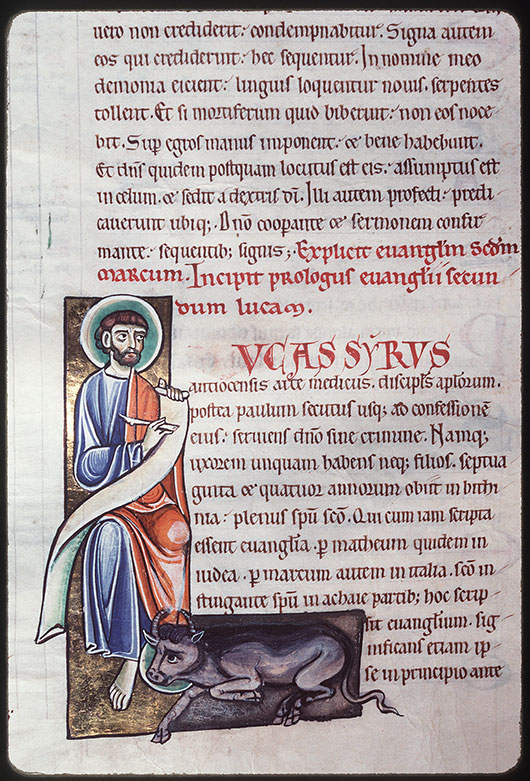 uero non crediderit. condempnabitur. Signa autem
eos qui crediderint. hec sequentur. In nomine meo
demonia eicient. linguis loquentur nouis. serpentes
tollent. Et si mortiferum quid biberint. non eos noce
bit. Sup egros manus imponent. & bene habebunt.
Et dns quidem postquam locutus est eis. assumptus est
in celum. & sedit a dextris di. Illi autem profecti. predi
cauerunt ubiq; dno cooperante & sermonem confir
mante. sequentib; signis;. Explicit euanglm scdm
marcum. Incipit prologus euanglii secun
dum lucam.
VCAS SYRVS
antiocensis arte medicus. discipls aplorum.
postea paulum secutus usq; ad confessionē
eius. seruiens dno sine crimine. Namq;
uxorem unquam habens neq; filios. septua
ginta & quatuor annorum obiit in bithi
nia. plenus spu sco. Qui cum iam scripta
essent euanglia. p matheum quidem in
iudea. p marcum autem in italia. sco in
stingante spu in achaie partib; hoc scrip
sit euanglium. sig
nificans etiam ip
se in principio ante